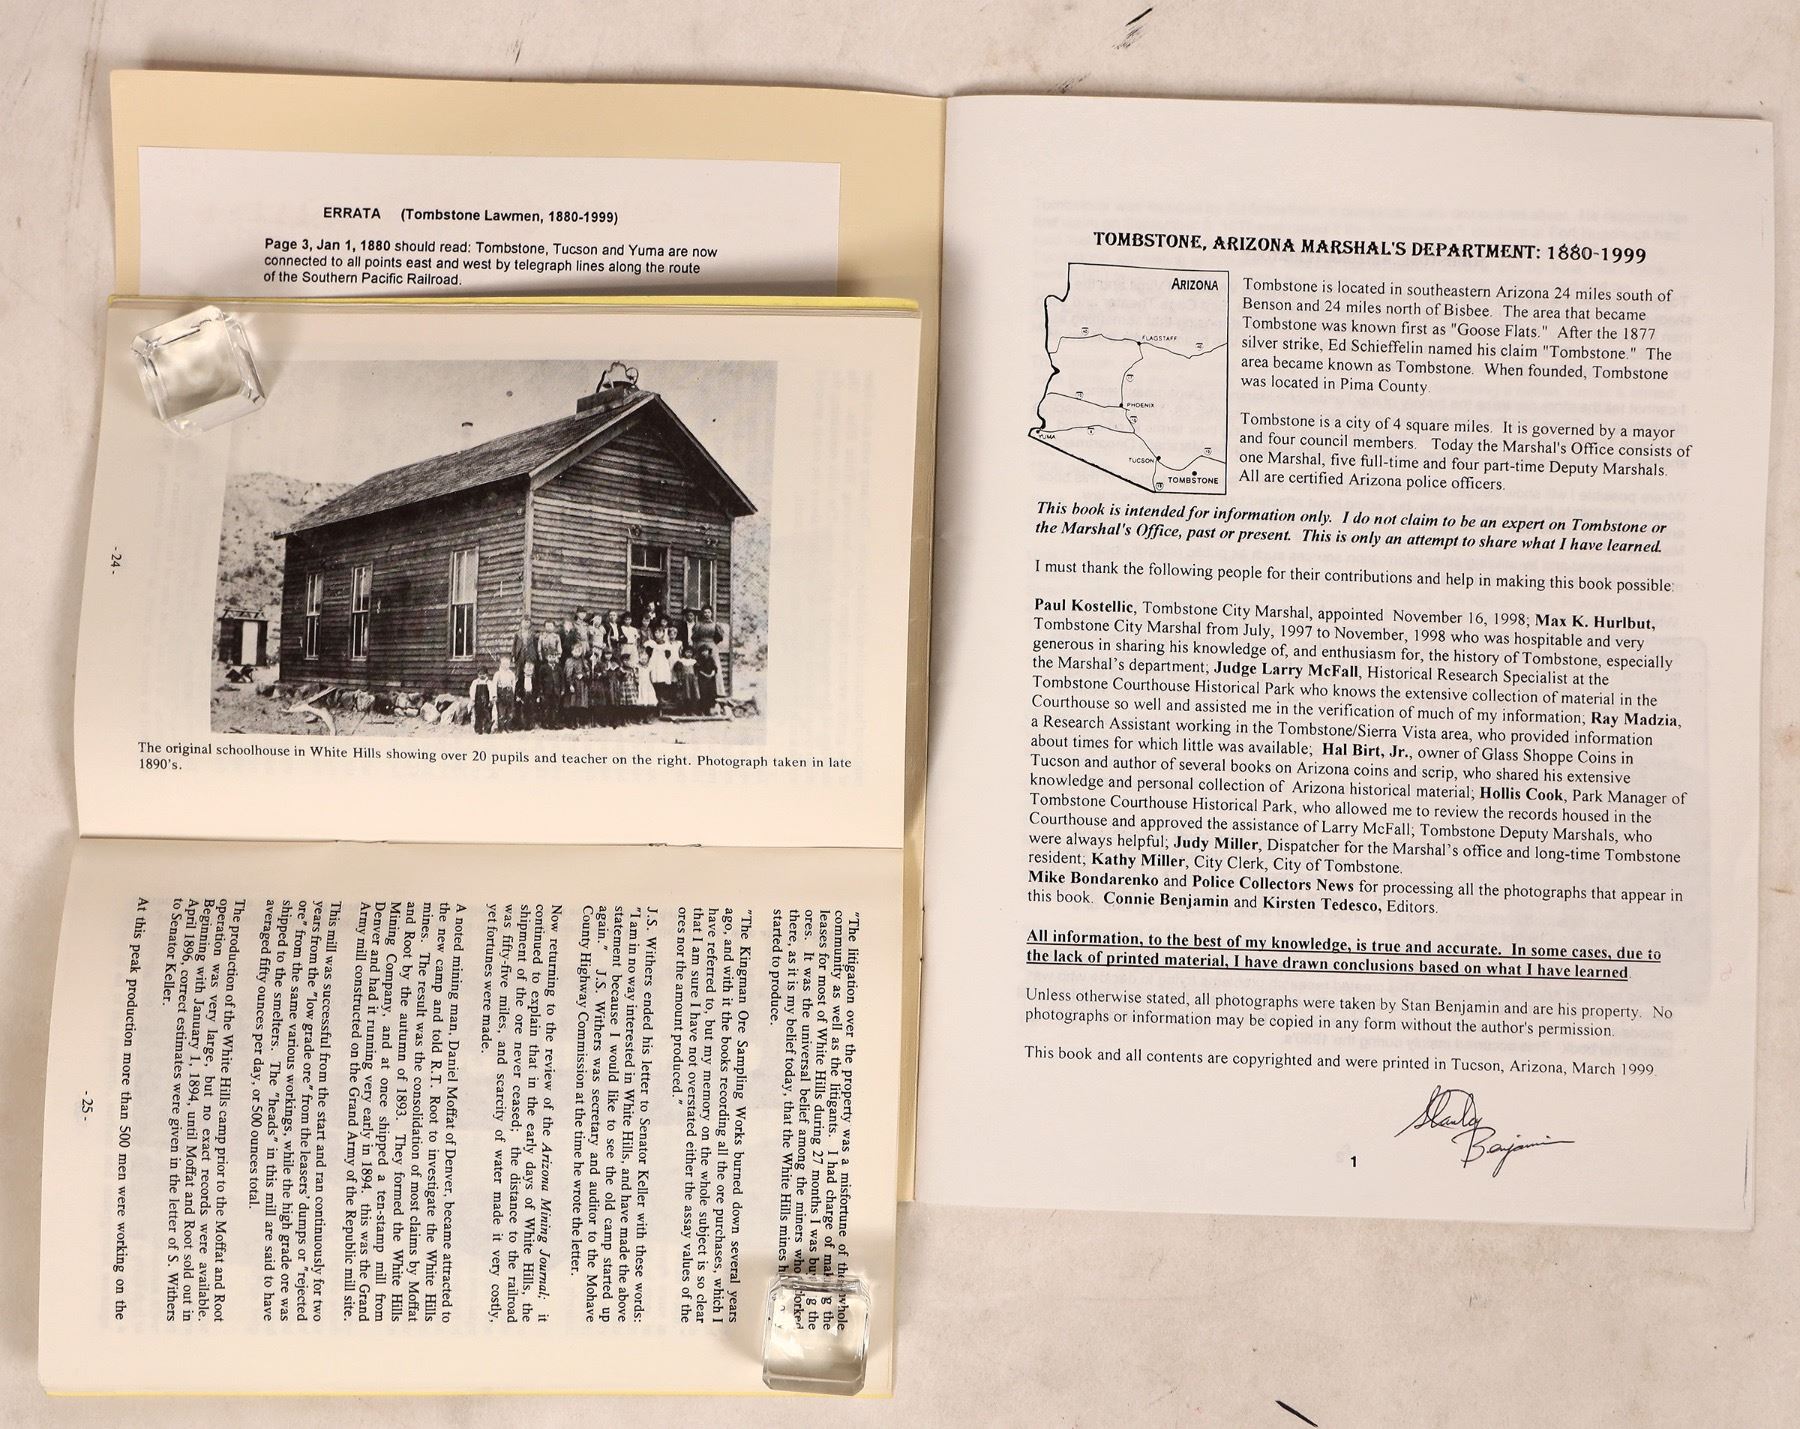 ERRATA (Tombstone Lawmen, 1880-1999)
Page 3, Jan 1, 1880 should read: Tombstone, Tucson and Yuma are now
connected to all points east and west by telegraph lines along the route
of the Southern Pacific Railroad.
-24-
The original schoolhouse in White Hills showing over 20 pupils and teacher on the right. Photograph taken in late
1890's.
"The litigation over the property was a misfortune of the whole
community as well as the litigants. I had charge of making the
leases for most of White Hills during 27 months I was buying the
ores. It was the universal belief among the miners who worked
there, as it is my belief today, that the White Hills mines h
started to produce.
"The Kingman Ore Sampling Works burned down several years
ago, and with it the books recording all the ore purchases, which I
have referred to, but my memory on the whole subject is so clear
that I am sure I have not overstated either the assay values of the
ores nor the amount produced."
J.S. Withers ended his letter to Senator Keller with these words:
"I am in no way interested in White Hills, and have made the above
statement because I would like to see the old camp started up
again." J.S. Withers was secretary and auditor to the Mohave
County Highway Commission at the time he wrote the letter.
Now returning to the review of the Arizona Mining Journal; it
continued to explain that in the early days of White Hills, the
shipment of the ore never ceased; the distance to the railroad
was fifty-five miles, and scarcity of water made it very costly,
yet fortunes were made.
A noted mining man, Daniel Moffat of Denver, became attracted to
the new camp and told R.T. Root to investigate the White Hills
mines. The result was the consolidation of most claims by Moffat
and Root by the autumn of 1893. They formed the White Hills
Mining Company, and at once shipped a ten-stamp mill from
Denver and had it running very early in 1894. this was the Grand
Army mill constructed on the Grand Army of the Republic mill site.
This mill was successful from the start and ran continuously for two
years from the "low grade ore" from the leasers' dumps or "rejected
ore" from the same various workings, while the high grade ore was
shipped to the smelters. The "heads" in this mill are said to have
averaged fifty ounces per day, or 500 ounces total.
The production of the White Hills camp prior to the Moffat and Root
operation was very large, but no exact records were available.
Beginning with January 1, 1894, until Moffat and Root sold out in
April 1896, correct estimates were given in the letter of S. Withers
to Senator Keller.
At this peak production more than 500 men were working on the
-25-
TOMBSTONE, ARIZONA MARSHAL'S DEPARTMENT: 1880-1999
ARIZONA
40
FLAGSTAFF
40
17
10
PHOENIX
10
YUMA
8
TUCSON
10
TOMBSTONE
19
Tombstone is located in southeastern Arizona 24 miles south of
Benson and 24 miles north of Bisbee. The area that became
Tombstone was known first as "Goose Flats." After the 1877
silver strike, Ed Schieffelin named his claim "Tombstone." The
area became known as Tombstone. When founded, Tombstone
was located in Pima County.
Tombstone is a city of 4 square miles. It is governed by a mayor
and four council members. Today the Marshal's Office consists of
one Marshal, five full-time and four part-time Deputy Marshals.
All are certified Arizona police officers.
This book is intended for information only. I do not claim to be an expert on Tombstone or
the Marshal's Office, past or present. This is only an attempt to share what I have learned.
I must thank the following people for their contributions and help in making this book possible:
Paul Kostellic, Tombstone City Marshal, appointed November 16, 1998; Max K. Hurlbut,
Tombstone City Marshal from July, 1997 to November, 1998 who was hospitable and very
generous in sharing his knowledge of, and enthusiasm for, the history of Tombstone, especially
the Marshal's department; Judge Larry McFall, Historical Research Specialist at the
Tombstone Courthouse Historical Park who knows the extensive collection of material in the
Courthouse so well and assisted me in the verification of much of my information; Ray Madzia,
a Research Assistant working in the Tombstone/Sierra Vista area, who provided information
about times for which little was available; Hal Birt, Jr., owner of Glass Shoppe Coins in
Tucson and author of several books on Arizona coins and scrip, who shared his extensive
knowledge and personal collection of Arizona historical material; Hollis Cook, Park Manager of
Tombstone Courthouse Historical Park, who allowed me to review the records housed in the
Courthouse and approved the assistance of Larry McFall; Tombstone Deputy Marshals, who
were always helpful; Judy Miller, Dispatcher for the Marshal's office and long-time Tombstone
resident; Kathy Miller, City Clerk, City of Tombstone.
Mike Bondarenko and Police Collectors News for processing all the photographs that appear in
this book. Connie Benjamin and Kirsten Tedesco, Editors.
All information, to the best of my knowledge, is true and accurate. In some cases, due to
the lack of printed material, I have drawn conclusions based on what I have learned.
Unless otherwise stated, all photographs were taken by Stan Benjamin and are his property. No
photographs or information may be copied in any form without the author's permission.
This book and all contents are copyrighted and were printed in Tucson, Arizona, March 1999.
Stanley
Benjamin
1